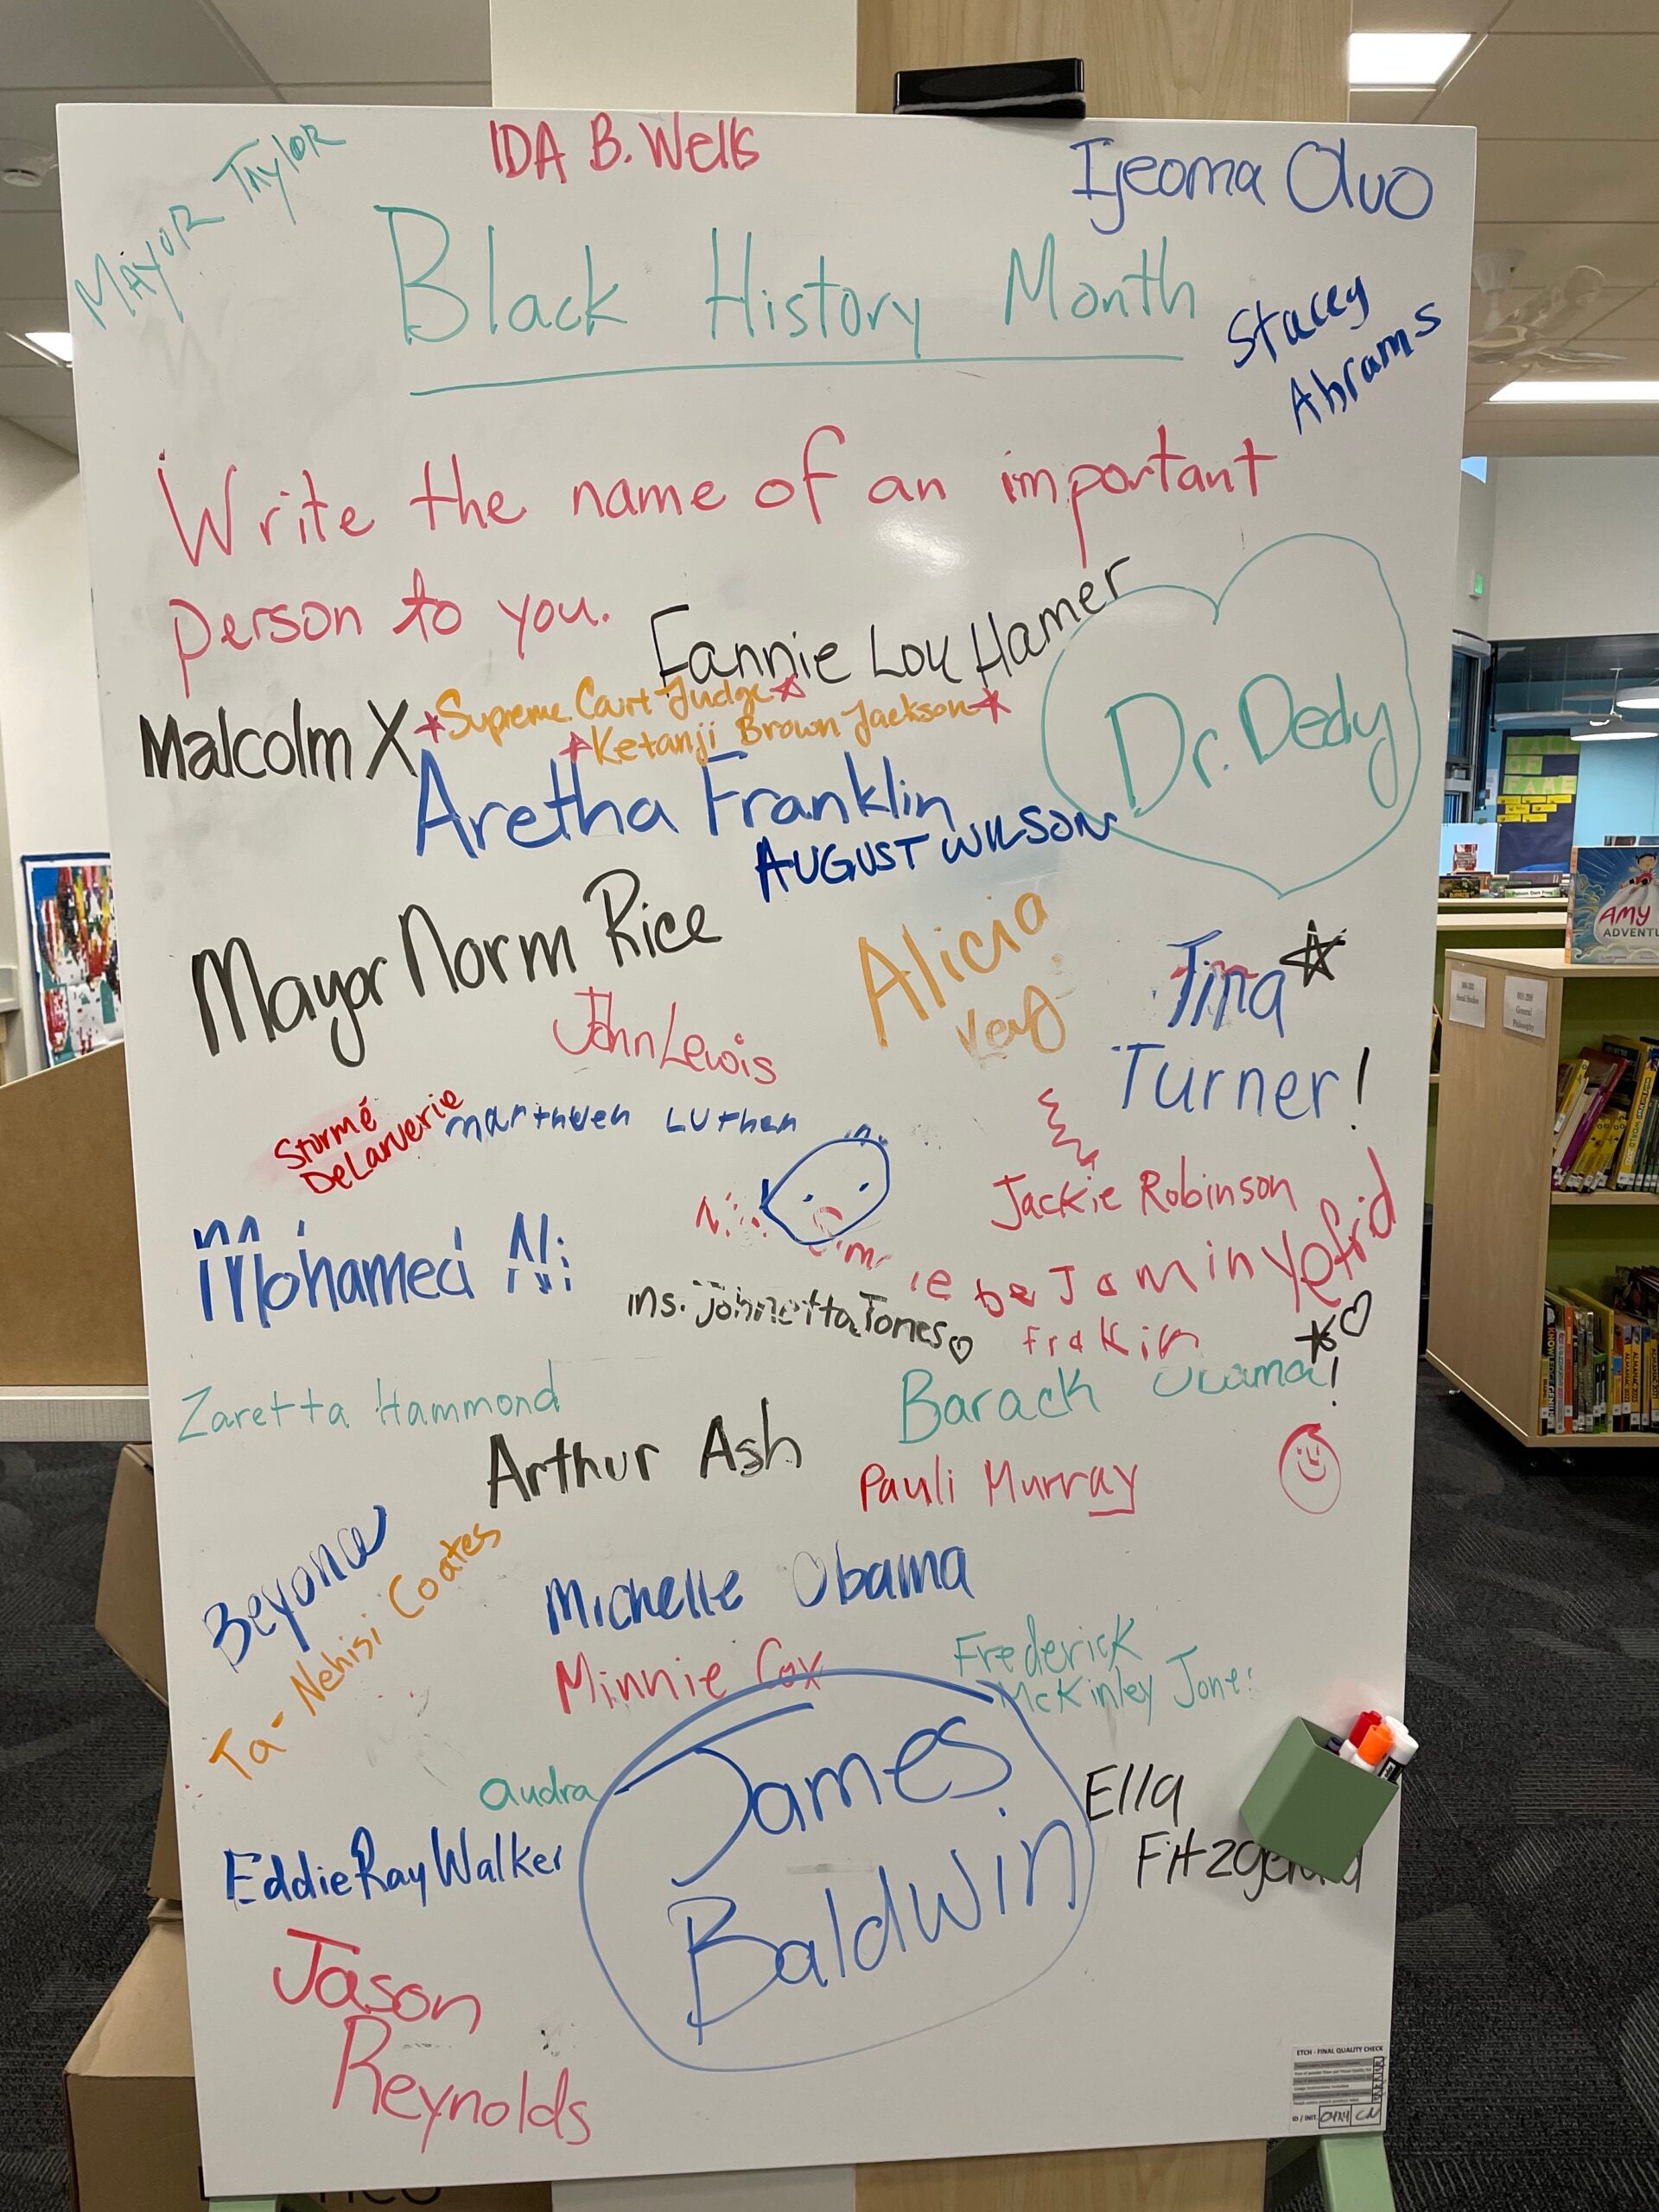 Mayor Taylor
IDA B. Wells
Ijeoma Oluo
Black History Month
Stacey
Abrams
Write the name of an important
person to you.
Fannie Lou Hamer
Malcolm X
Supreme Court Judge
Ketanji Brown Jackson
Dr. Dedy
Aretha Franklin
AUGUST WILSON
Mayor Norm Rice
Alicia
Key
Tina
Turner!
John Lewis
Stormé
DeLarverie
LUthen
Jackie Robinson
Mohamed Ali
Yefrid
be Jamin
frakin
ms. Johnetta Jones
Zaretta Hammond
Barack Obama!
Arthur Ash
Pauli Murray
Beyonce
Ta-Nehisi Coates
Michelle Obama
Minnie Cox
Frederick
McKinley Jones
audra
James
Baldwin
Ella
Fitzgerald
Eddie Ray Walker
Jason
Reynolds
AMY
ADVENTU
ETCH - FINAL QUALITY CHECK